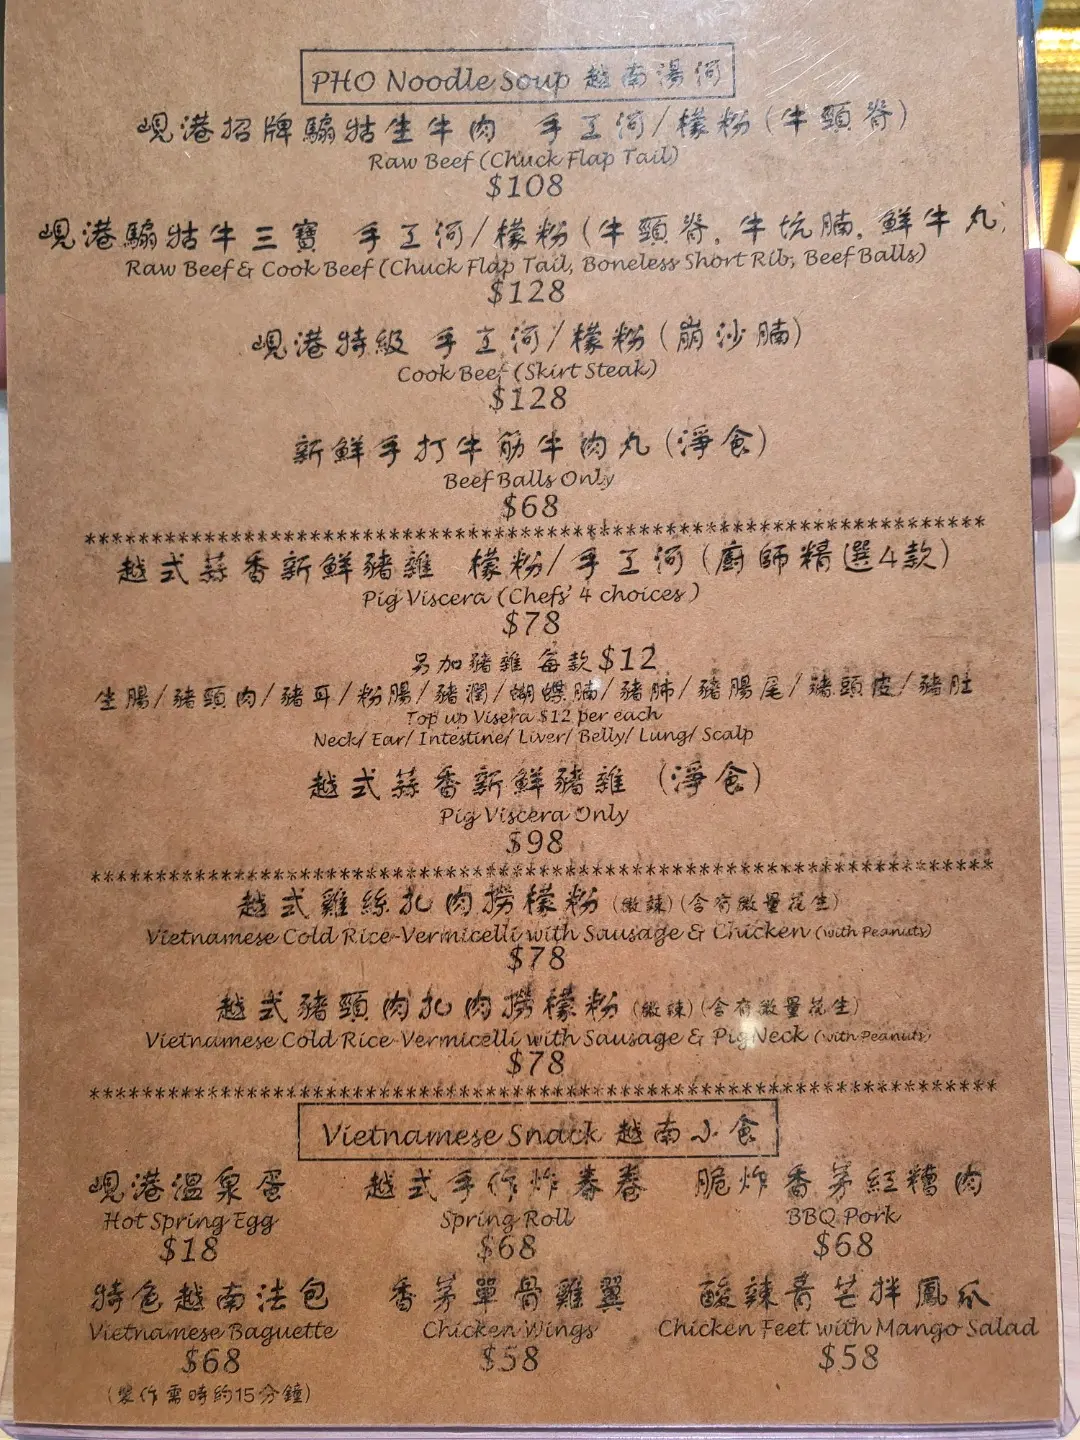 PHO Noodle Soup 越南湯河
峴港招牌騸牯生牛肉 手工河/檬粉(牛頸脊)
Raw Beef (Chuck Flap Tail)
$108
峴港騸牯牛三寶 手工河/檬粉(牛頸脊,牛坑腩,鮮牛丸)
Raw Beef & Cook Beef (Chuck Flap Tail, Boneless Short Rib, Beef Balls)
$128
峴港特級 手工河/檬粉(崩沙腩)
Cook Beef (Skirt Steak)
$128
新鮮手打牛筋牛肉丸(淨食)
Beef Balls Only
$68
越式蒜香新鮮豬雜 檬粉/手工河(廚師精選4款)
Pig Viscera (Chefs' 4 choices)
$78
另加豬雜 每款$12
生腸/豬頸肉/豬耳/粉腸/豬潤/蝴蝶腩/豬肺/豬腸尾/豬頭皮/豬肚
Top up Visera $12 per each
Neck/ Ear/ Intestine/ Liver/ Belly/ Lung/ Scalp
越式蒜香新鮮豬雜 (淨食)
Pig Viscera Only
$98
越式雞絲扎肉撈檬粉(微辣)(含有微量花生)
Vietnamese Cold Rice-Vermicelli with Sausage & Chicken (with Peanuts)
$78
越式豬頸肉扎肉撈檬粉(微辣)(含有微量花生)
Vietnamese Cold Rice-Vermicelli with Sausage & Pig Neck (with Peanuts)
$78
Vietnamese Snack 越南小食
峴港溫泉蛋 越式手作炸春卷 脆炸香茅紅糟肉
Hot Spring Egg Spring Roll BBQ Pork
$18 $68 $68
特色越南法包 香茅單骨雞翼 酸辣青芒拌鳳爪
Vietnamese Baguette Chicken Wings Chicken Feet with Mango Salad
$68 $58 $58
(製作需時約15分鐘)